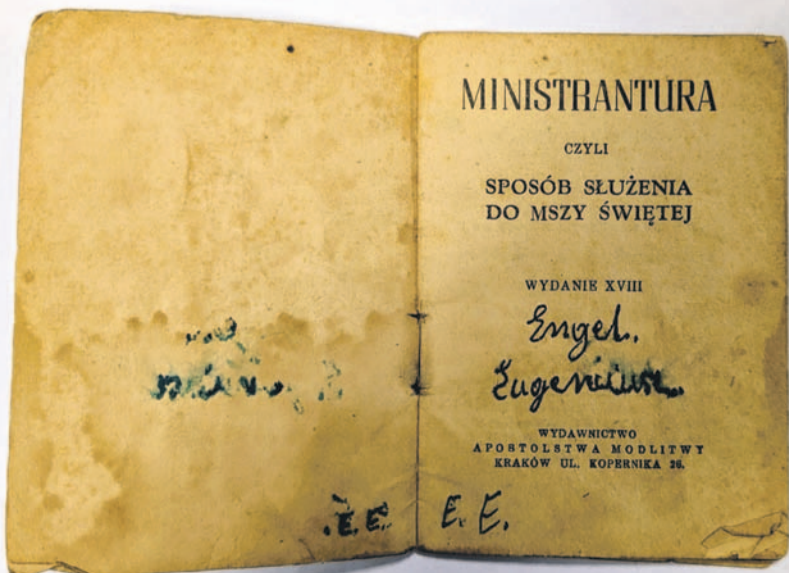 .E.E.
MINISTRANTURA
CZYLI
SPOSÓB SŁUŻENIA
DO MSZY ŚWIĘTEJ
WYDANIE XVIII
Engel.
Eugeniusz.
WYDAWNICTWO
APOSTOLSTWA MODLITWY
KRAKÓW UL. KOPERNIKA 26.
E. E.